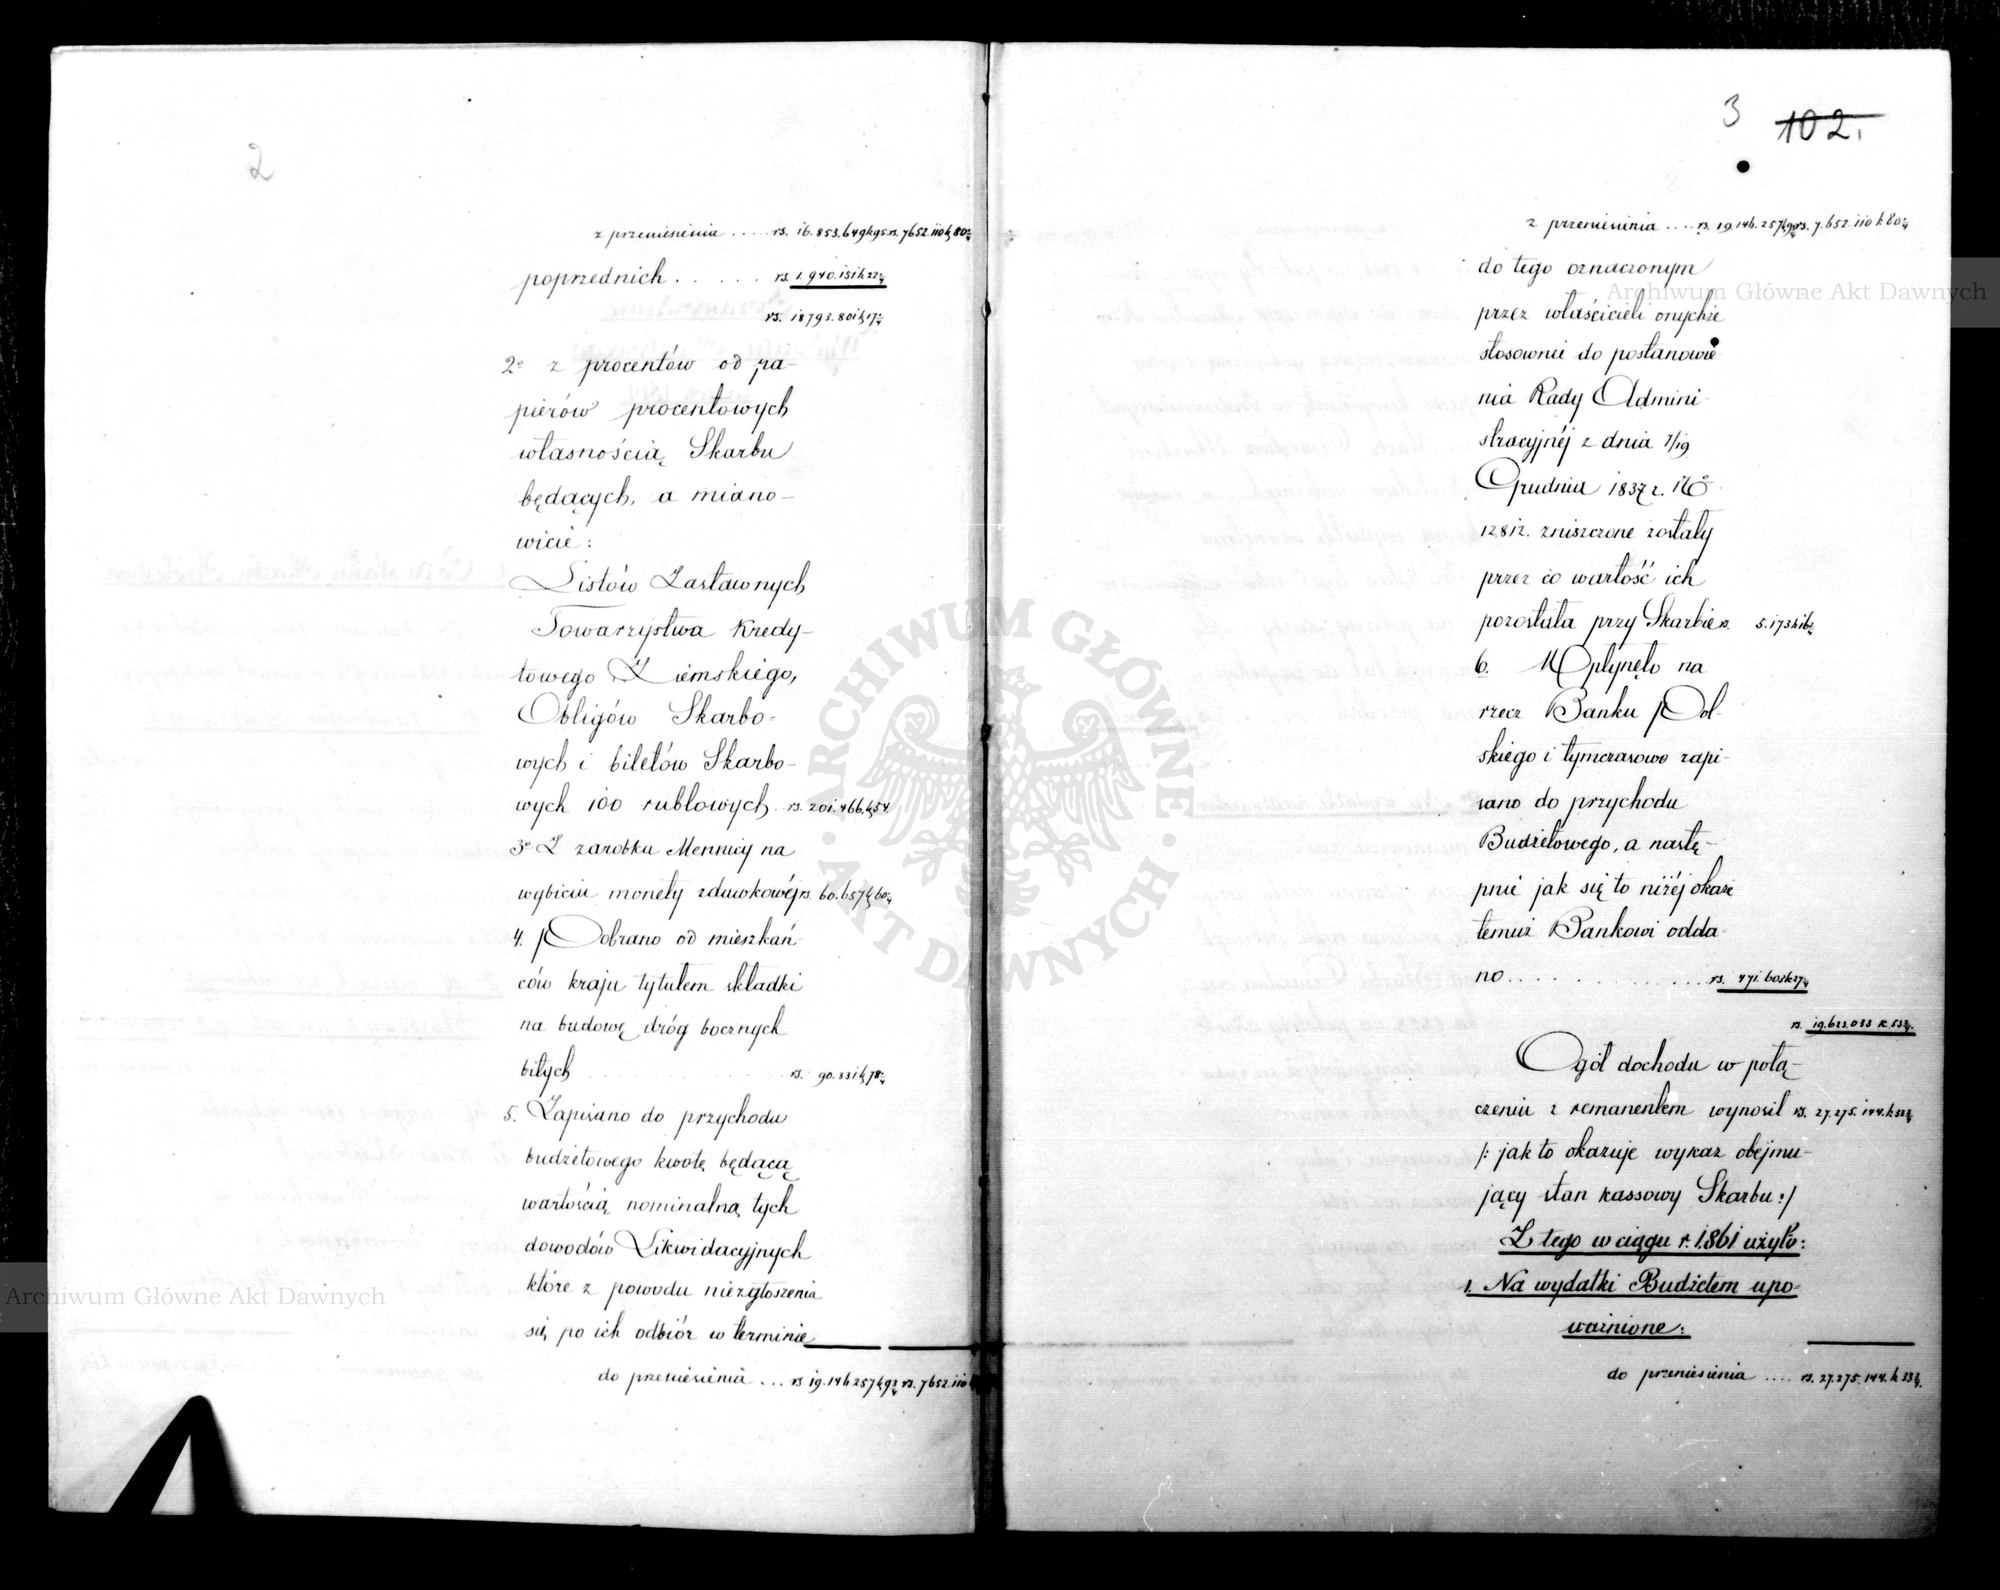 2
z przeniesienia .... rs. 16.853.649 k 95 rs. 7652.110 k 80
poprzednich ...... rs. 1.940.151 k 22
rs. 18793.801 k 17
2° z procentów od pa-
pierów procentowych
własnością Skarbu
będących, a miano-
wicie:
Listów Zastawnych
Towarzystwa Kredy-
towego Ziemskiego,
Obligów Skarbo-
wych i biletów Skarbo-
wych 100 rublowych rs. 201.466. k 54
3° Z zarobku Mennicy na
wybiciu monety zdawkowéj rs. 60.657 k 60
4. Pobrano od mieszkań-
ców kraju tytułem składki
na budowę dróg bocznych
bitych rs. 90.331 k 78
5. Zapisano do przychodu
budżetowego kwotę będącą
wartością nominalną tych
dowodów Likwidacyjnych
które z powodu niezgłoszenia
się po ich odbiór w terminie
do przeniesienia ... rs 19.146257 k 92 rs. 7652.110
3 102.
z przeniesienia .... rs. 19.146.257 k 90 rs. 7.652.110 k 80
do tego oznaczonym
przez właścicieli onychże
stosownie do postanowie
nia Rady Admini-
stracyjnéj z dnia 7/19
Grudnia 1837 r. No
12812. zniszczone zostały
przez co wartość ich
pozostała przy Skarbie rs. 5.173 k 16
6. Wpłynęło na
rzecz Banku Pol-
skiego i tymczasowo zapi-
sano do przychodu
Budżetowego, a nastę-
pnie jak się to niżéj okaże
temuż Bankowi odda-
no .............. rs. 471.605 k 27
rs. 19.623.033 k. 53
Ogół dochodu w połą-
czeniu z remanentem wynosił rs. 27.275.144. k 33
/: jak to okazuje wykaz obejmu-
jący stan kassowy Skarbu :/
Z tego w ciągu r. 1861 użyto:
1. Na wydatki Budżetem upo-
ważnione:
do przeniesienia .... rs. 27.275.144. k 33
ARCHIWUM GŁÓWNE AKT DAWNYCH
Archiwum Główne Akt Dawnych
Archiwum Główne Akt Dawnych